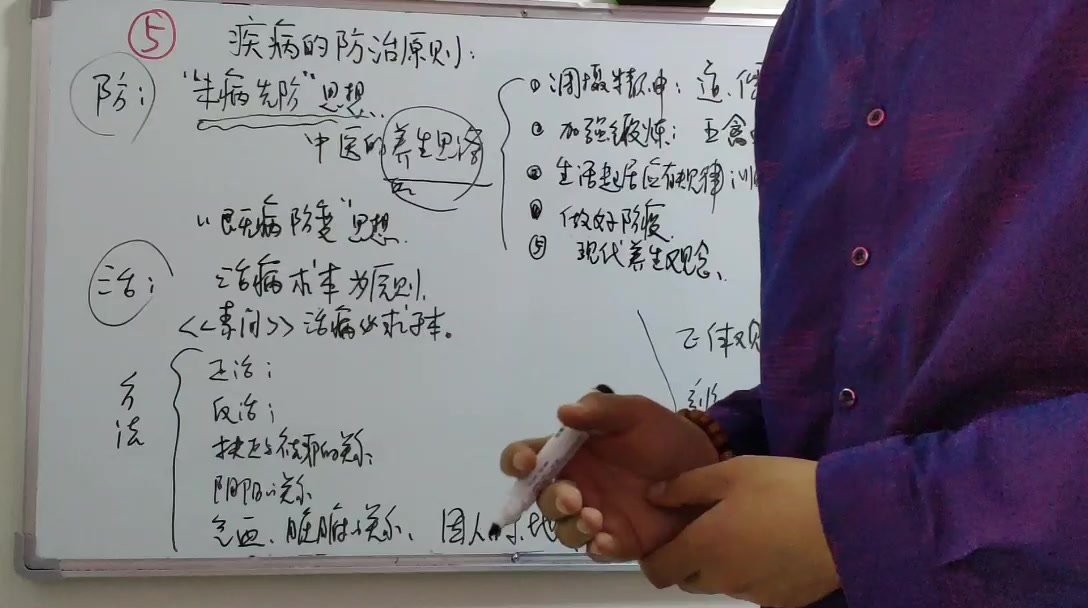 ⑤ 疾病的防治原则:
防: "未病先防"思想
中医的养生思想
① 调摄精神: 道、
② 加强锻炼: 五禽
③ 生活起居应有规律
④ 做好防疫
⑤ 现代养生观念、
"既病防变"思想.
治: 治病求本为原则.
《素问》治病必求于本。
方法
正治;
反治;
扶正与祛邪的关系、
阴阳的关系
气血、脏腑的关系、因人、地